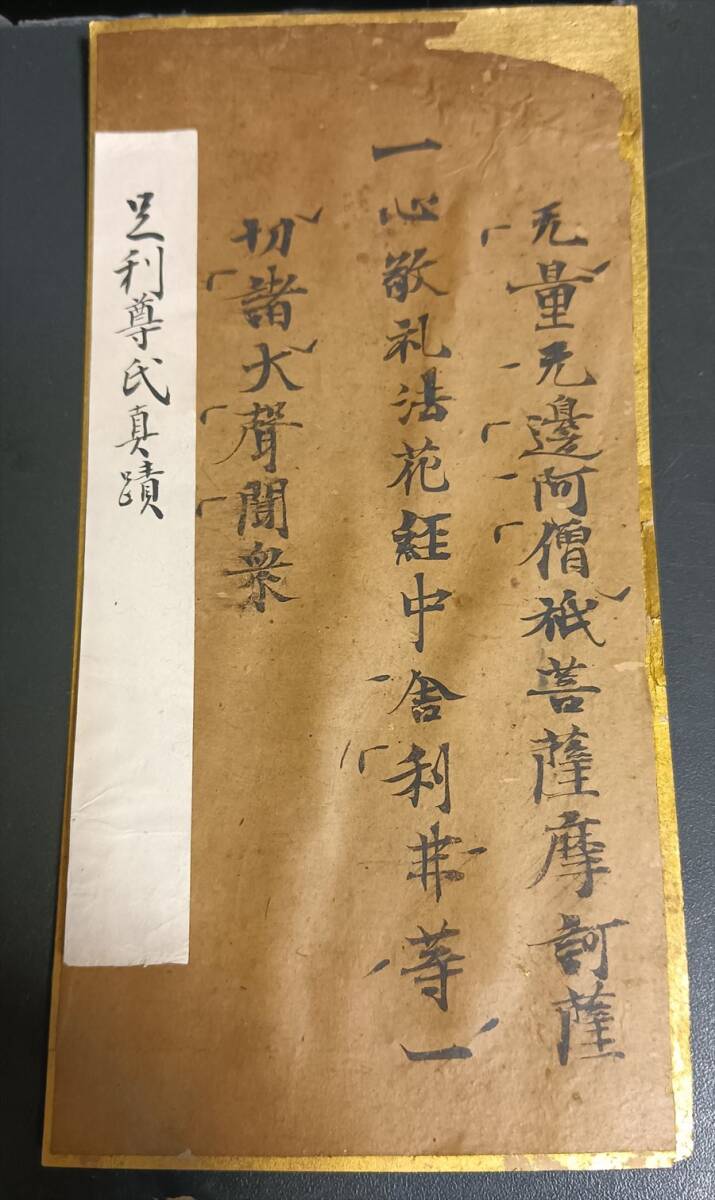 无量无邊阿僧祇菩薩摩訶薩
一心敬礼法花経中舎利弗等一
切諸大聲聞衆
足利尊氏真蹟